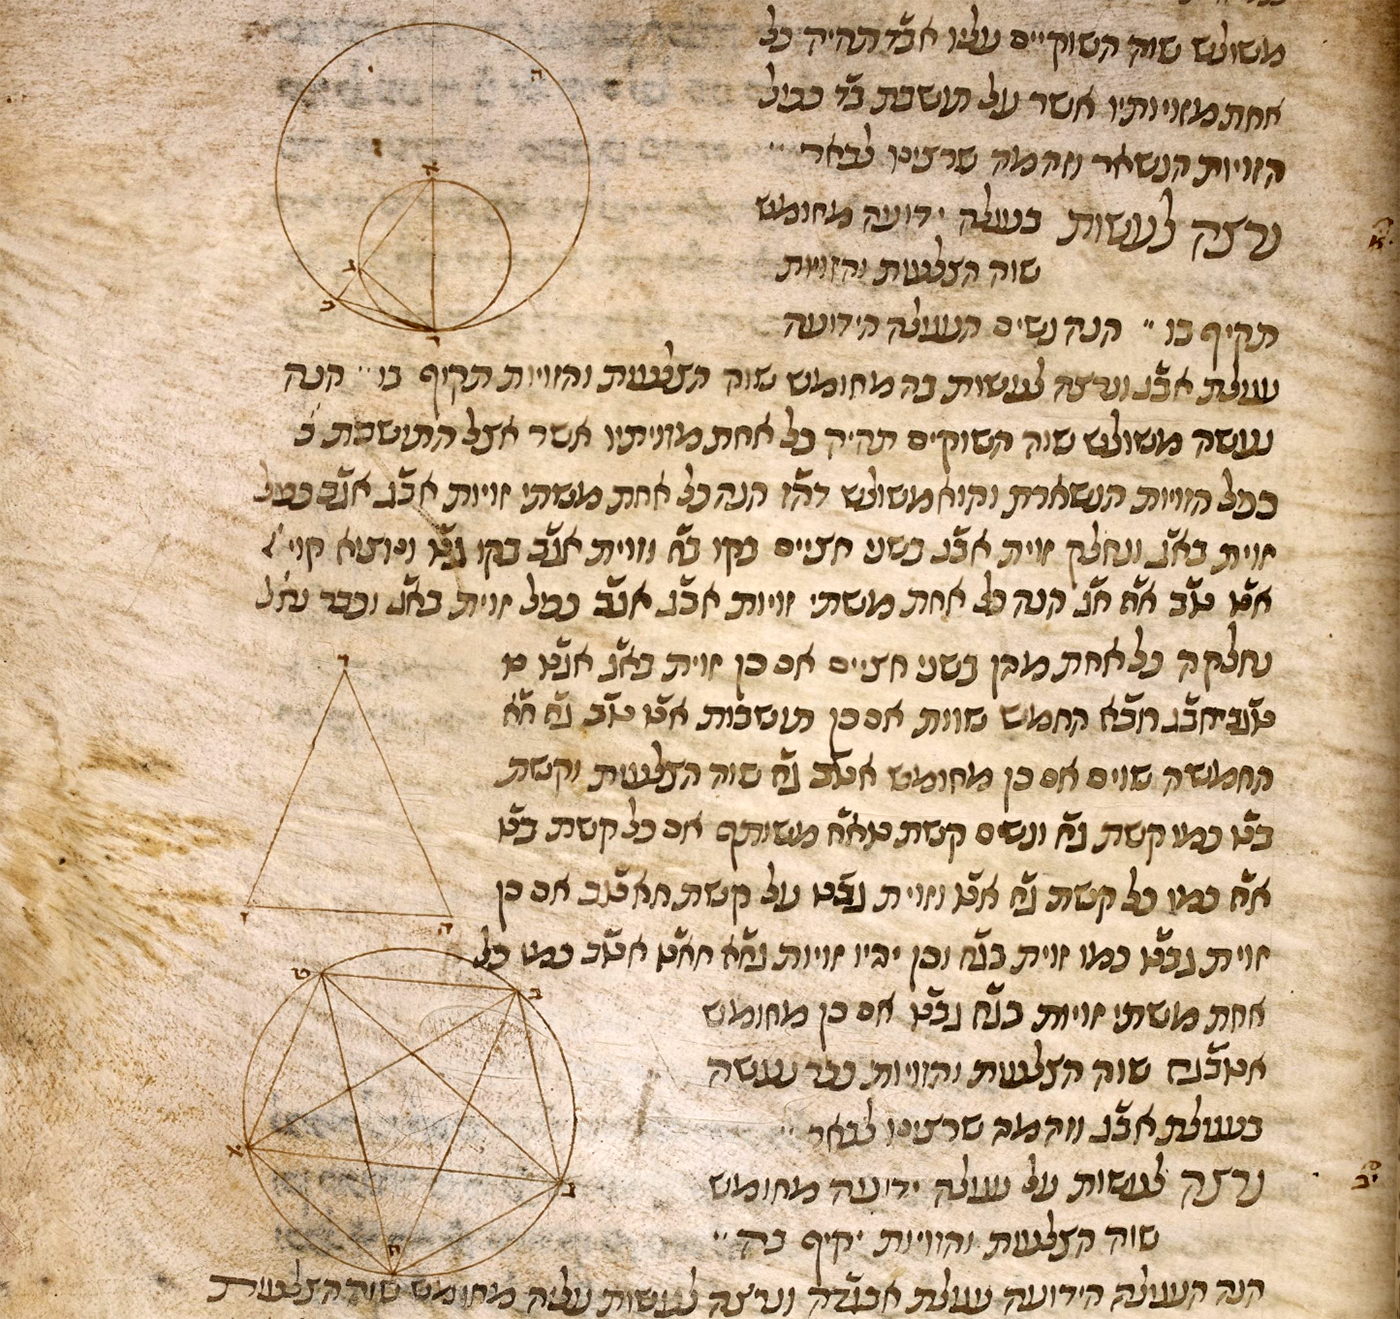 משולש שוק השוקיים עליו אבד תהיה כל
אחת מזויותיו אשר על תושבת בד כבול
הזויות הנשאר וזה מה שרצינו לבאר
נרצה לעשות בעגלה ידועה מחומש
שוה הצלעות והזויות
תקיף בו הנה נשים העגלה הידועה
עגלת אבג ונרצה לעשות בה מחומש שוה הצלעות והזויות תקיף בו הנה
נעשה משולש שוה השוקים תהיה כל אחת מזויתיו אשר אצל התושבת כ
כפל הזויות הנשארת והוא משולש דהז הנה כל אחת משתי זויות אבג אגב כפל
זוית באג ונחלק זוית אבג בשני חציים בקו בח וזוית אגב בקו גט ונוציא קוי
אט טב אח חג הנה כל אחת משתי זויות אבג אגב כפל זוית באג וכבר
נחלקה כל אחת מהן בשני חציים אם כן זוית באג אגט
טגב חבג חבא החמש שוות אם כן תושבות אט טב בג גח חא
החמשה שוים אם כן מחומש אטב גח שוה הצלעות וקשת
בט כמו קשת גח ונשים קשת טאח משותף אם כל קשת בט
אח כמו כל קשת גח אט וזוית גבט על קשת חאטב אם כן
זוית גבט כמו זוית בגח וכן יהיו זויות גחא חאט אטב כמו כל
אחת משתי זויות בגח גבט אם כן מחומש
אטבגח שוה הצלעות והזויות כבר נעשה
בעגלת אבג וזה מה שרצינו לבאר
נרצה לעשות על עגלה ידועה מחומש
שוה הצלעות והזויות יקיף בה
הנה העגלה הידועה עגלת אבגדה ונרצה לעשות עליה מחומש שוה הצלעות
יא
יב
ה
א
ג
ב
ד
ד
ז
ה
ט
ב
א
ג
ח